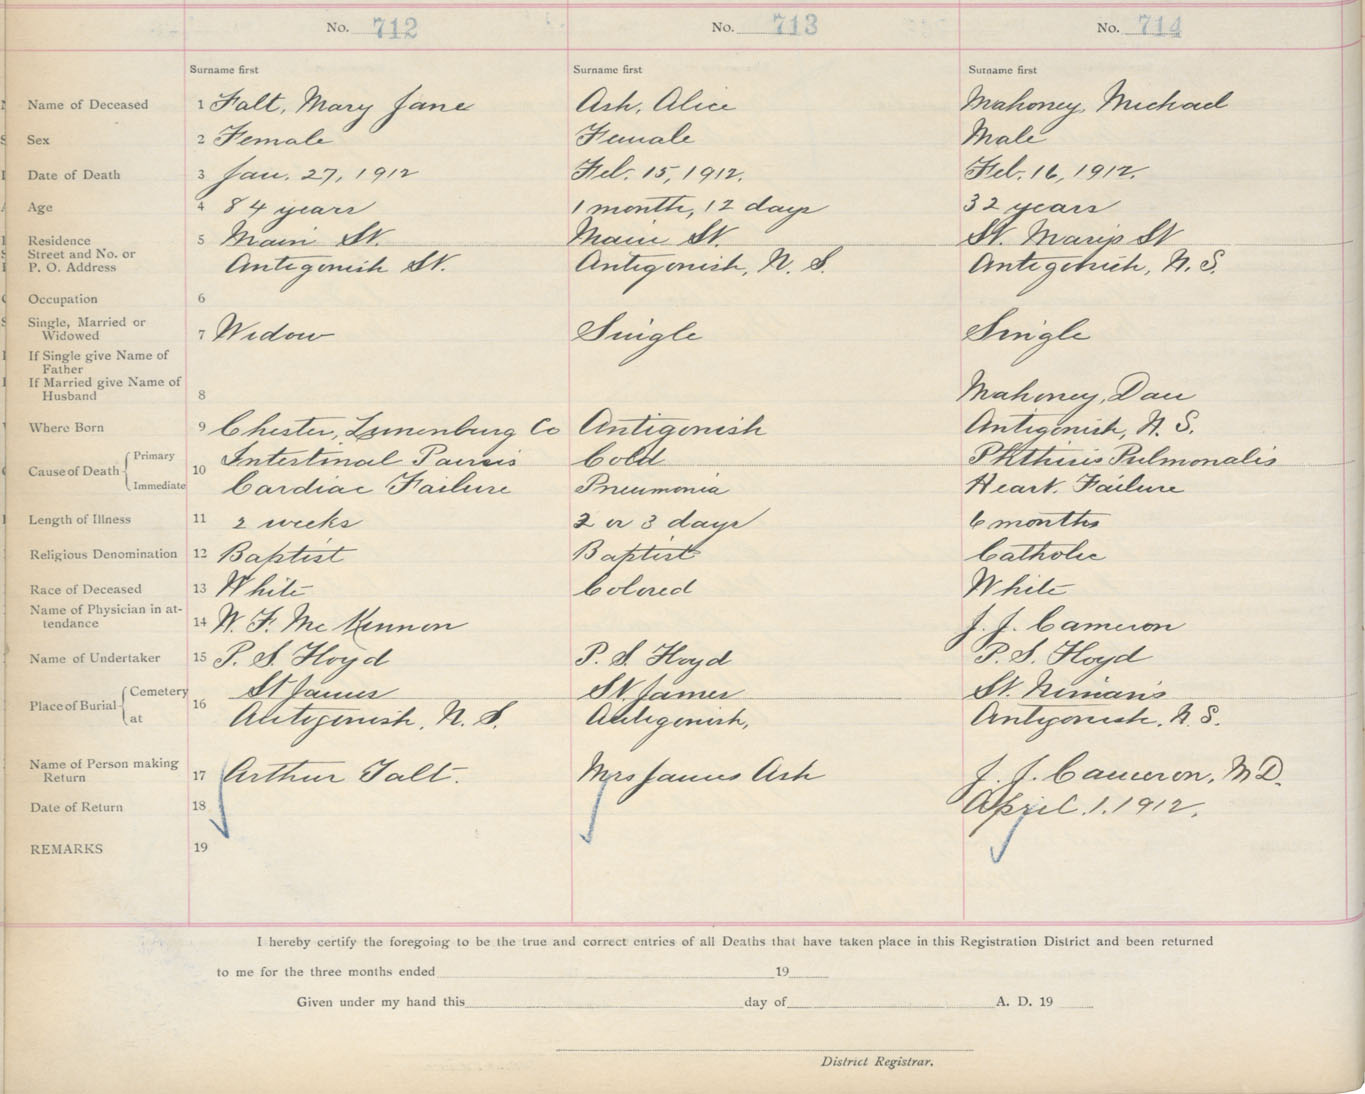 No. 712 No. 713 No. 714
Surname first Surname first Surname first
Name of Deceased 1 Falt, Mary Jane Ash, Alice Mahoney, Michael
Sex 2 Female Female Male
Date of Death 3 Jan. 27, 1912 Feb. 15, 1912. Feb. 16, 1912.
Age 4 84 years 1 month, 12 days 32 years
Residence 5 Main St. Main St. St. Marys St
Street and No. or
P. O. Address Antigonish St. Antigonish, N. S. Antigonish, N. S.
Occupation 6
Single, Married or
Widowed 7 Widow Single Single
If Single give Name of
Father
If Married give Name of
Husband 8 Mahoney, Dan
Where Born 9 Chester, Lunenburg Co Antigonish Antigonish, N. S.
Cause of Death Primary 10 Intestinal Cold Phthisis Pulmonalis
Immediate Cardiac Failure Pneumonia Heart Failure
Length of Illness 11 2 weeks 2 or 3 days 6 months
Religious Denomination 12 Baptist Baptist Catholic
Race of Deceased 13 White Colored White
Name of Physician in at-
tendance 14 W. F. McKinnon J. J. Cameron
Name of Undertaker 15 P. S. Floyd P. S. Floyd P. S. Floyd
Place of Burial Cemetery 16 St James St. James St. Ninian's
at Antigonish, N. S. Antigonish, Antigonish, N. S.
Name of Person making
Return 17 Arthur Falt. Mrs James Ash J. J. Cameron, M D.
Date of Return 18 April. 1. 1912.
REMARKS 19
I hereby certify the foregoing to be the true and correct entries of all Deaths that have taken place in this Registration District and been returned
to me for the three months ended 19
Given under my hand this day of A. D. 19
District Registrar.